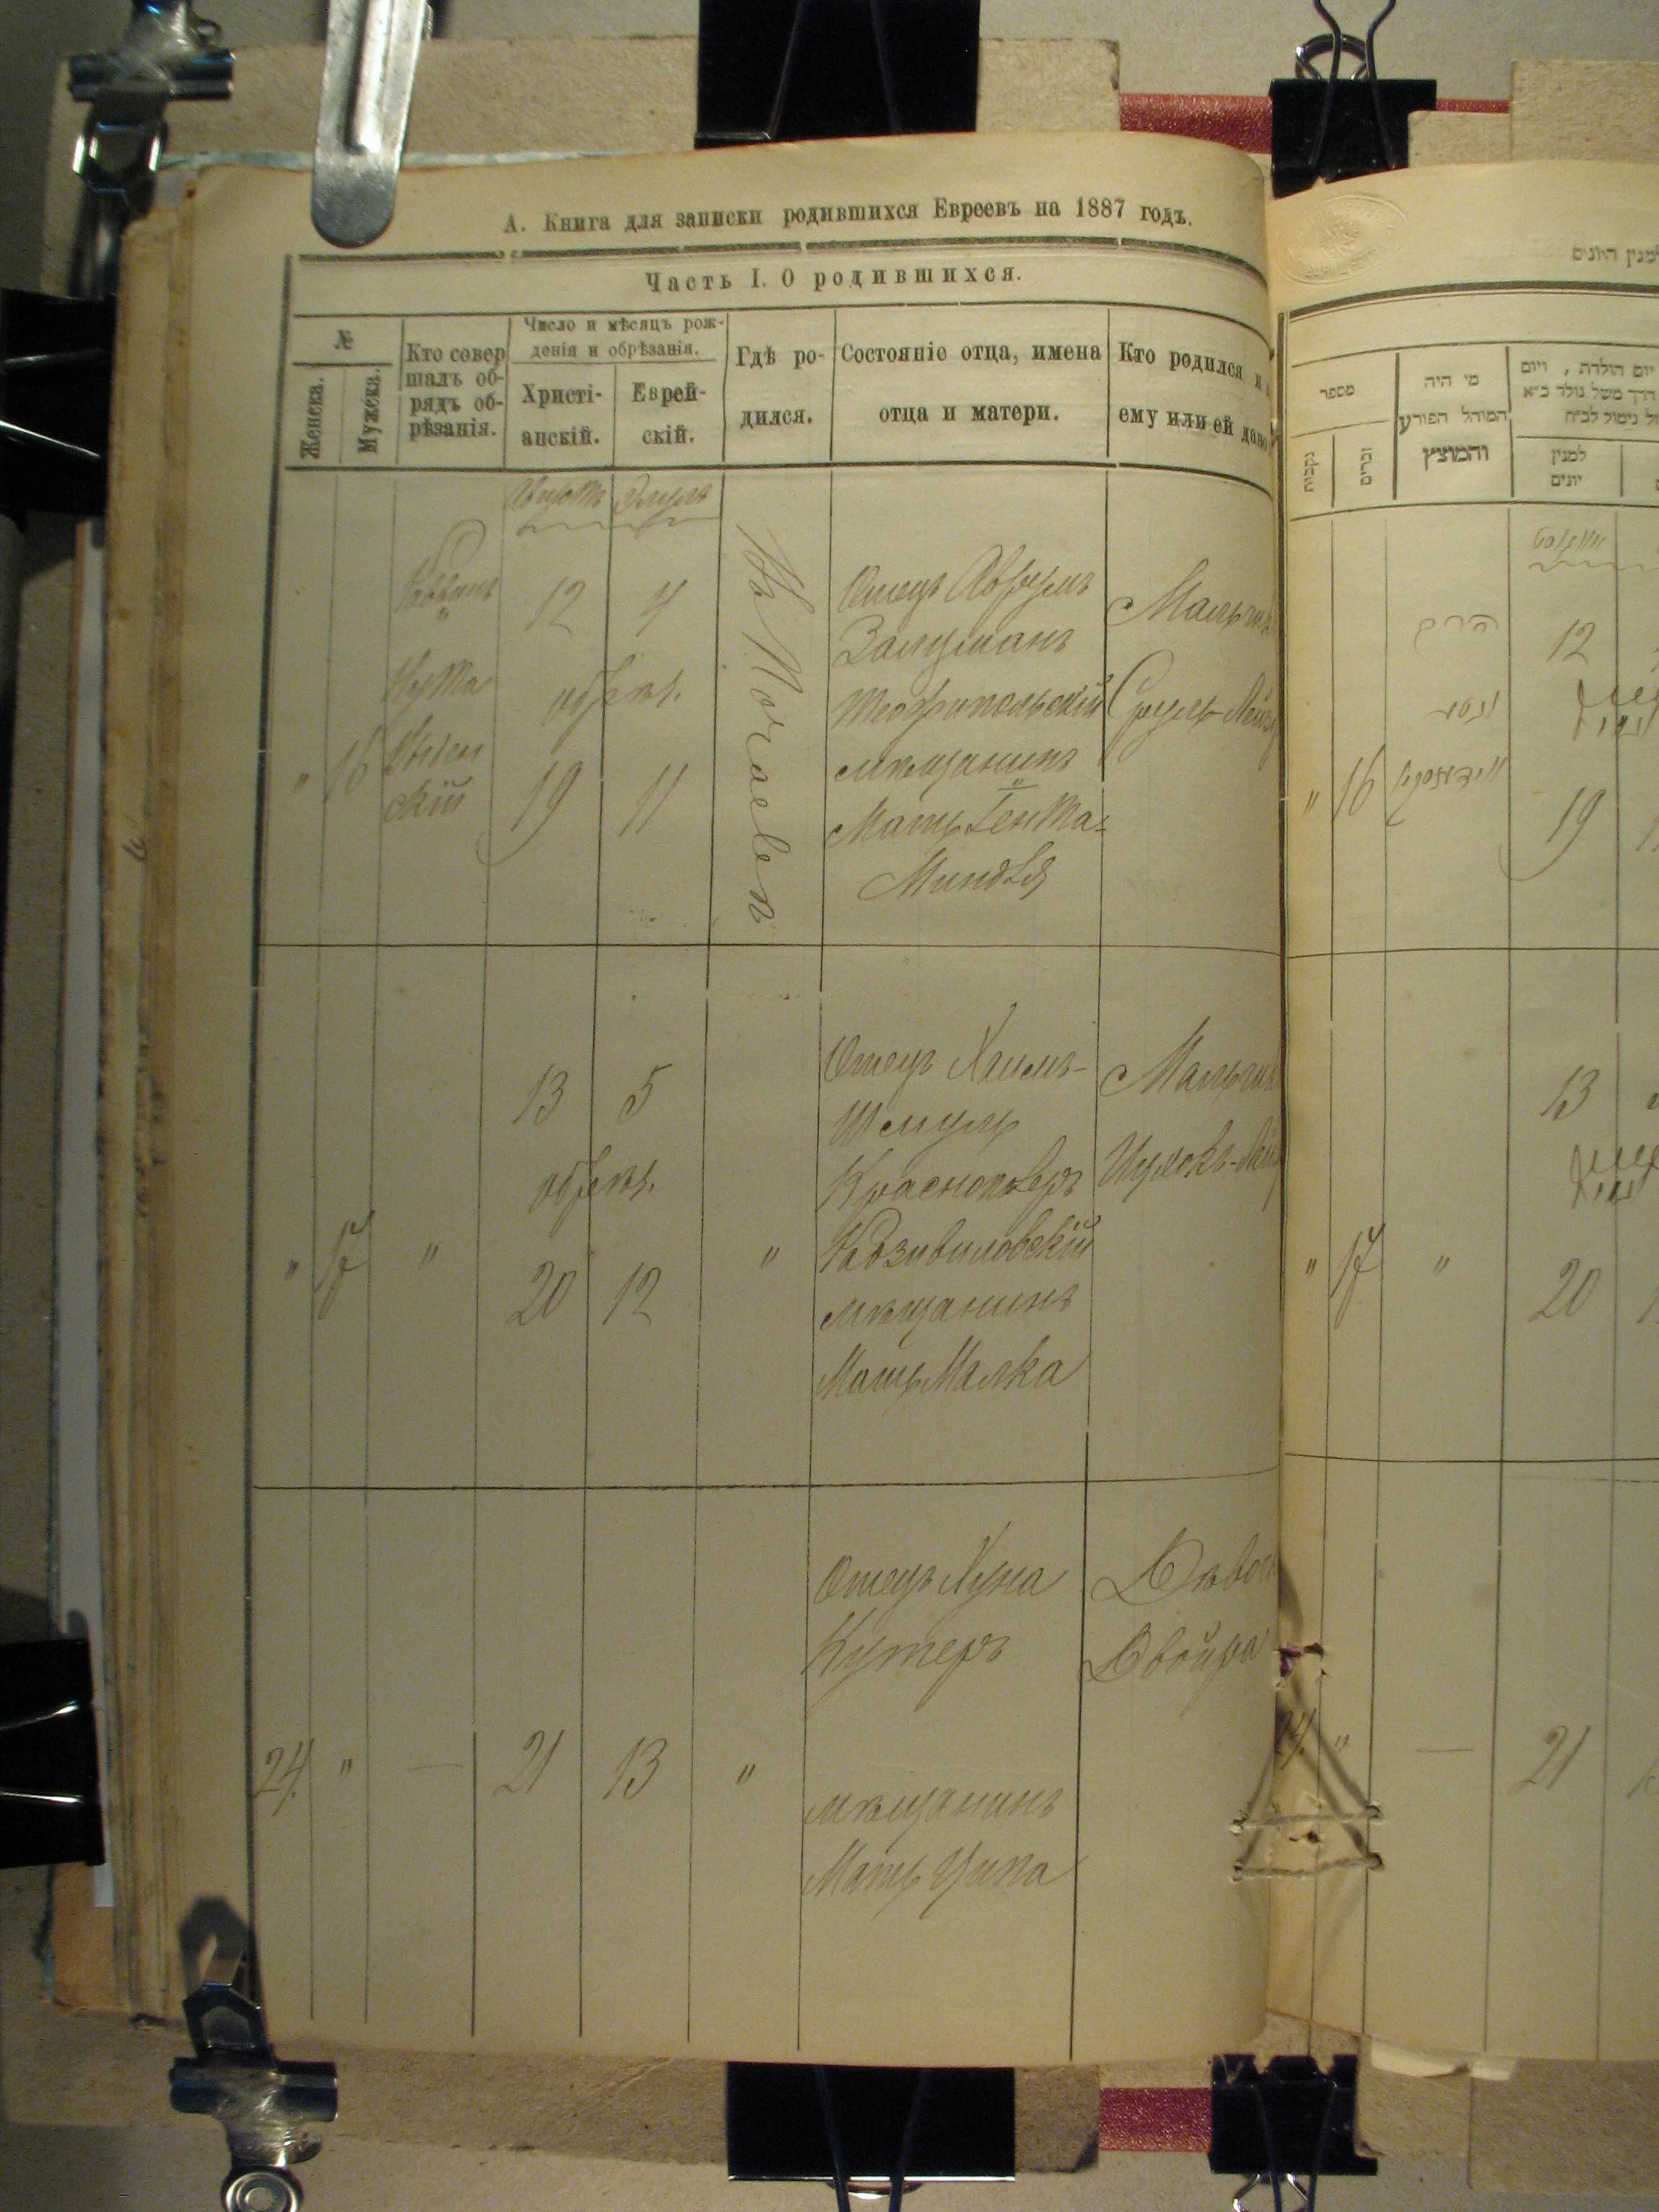 А. Книга для записки родившихся Евреевъ на 1887 годъ.
Часть I. О родившихся.
№
Женска.
Мужска.
Кто совер
шалъ об-
рядъ об-
рѣзанія.
Число и мѣсяцъ рож-
денія и обрѣзанія.
Христі-
анскій.
Еврей-
скій.
Гдѣ ро-
дился.
Состояніе отца, имена
отца и матери.
Кто родился и
ему или ей дано
Августъ Элулъ
"
16
Раввинъ
Нута
скій
12 4
обрѣз.
19 11
Въ Почаевѣ
Отецъ Аврумъ
Залцманъ
Теофипольскій
мѣщанинъ
Мать Гента-
Миндля
Мальчик
Сруль-Лейз
"
17
"
13 5
обрѣз.
20 12
"
Отецъ Хаимъ-
Шмуль
Красноперъ
Радзивиловскій
мѣщанинъ
Мать Малка
Мальчик
24.
"
—
21 13
"
Отецъ Хуна
Кутеръ
мѣщанинъ
Мать Ципа
Дѣвоч
Двойра
למנין היונים
מספר
נקבות
זכרים
מי היה
המוהל הפורע
והמוצץ
יום הולדת , ויום
למנין
יונים
"
16
הרב
נוטע
12
19
"
17
"
13
20
24.
"
—
21